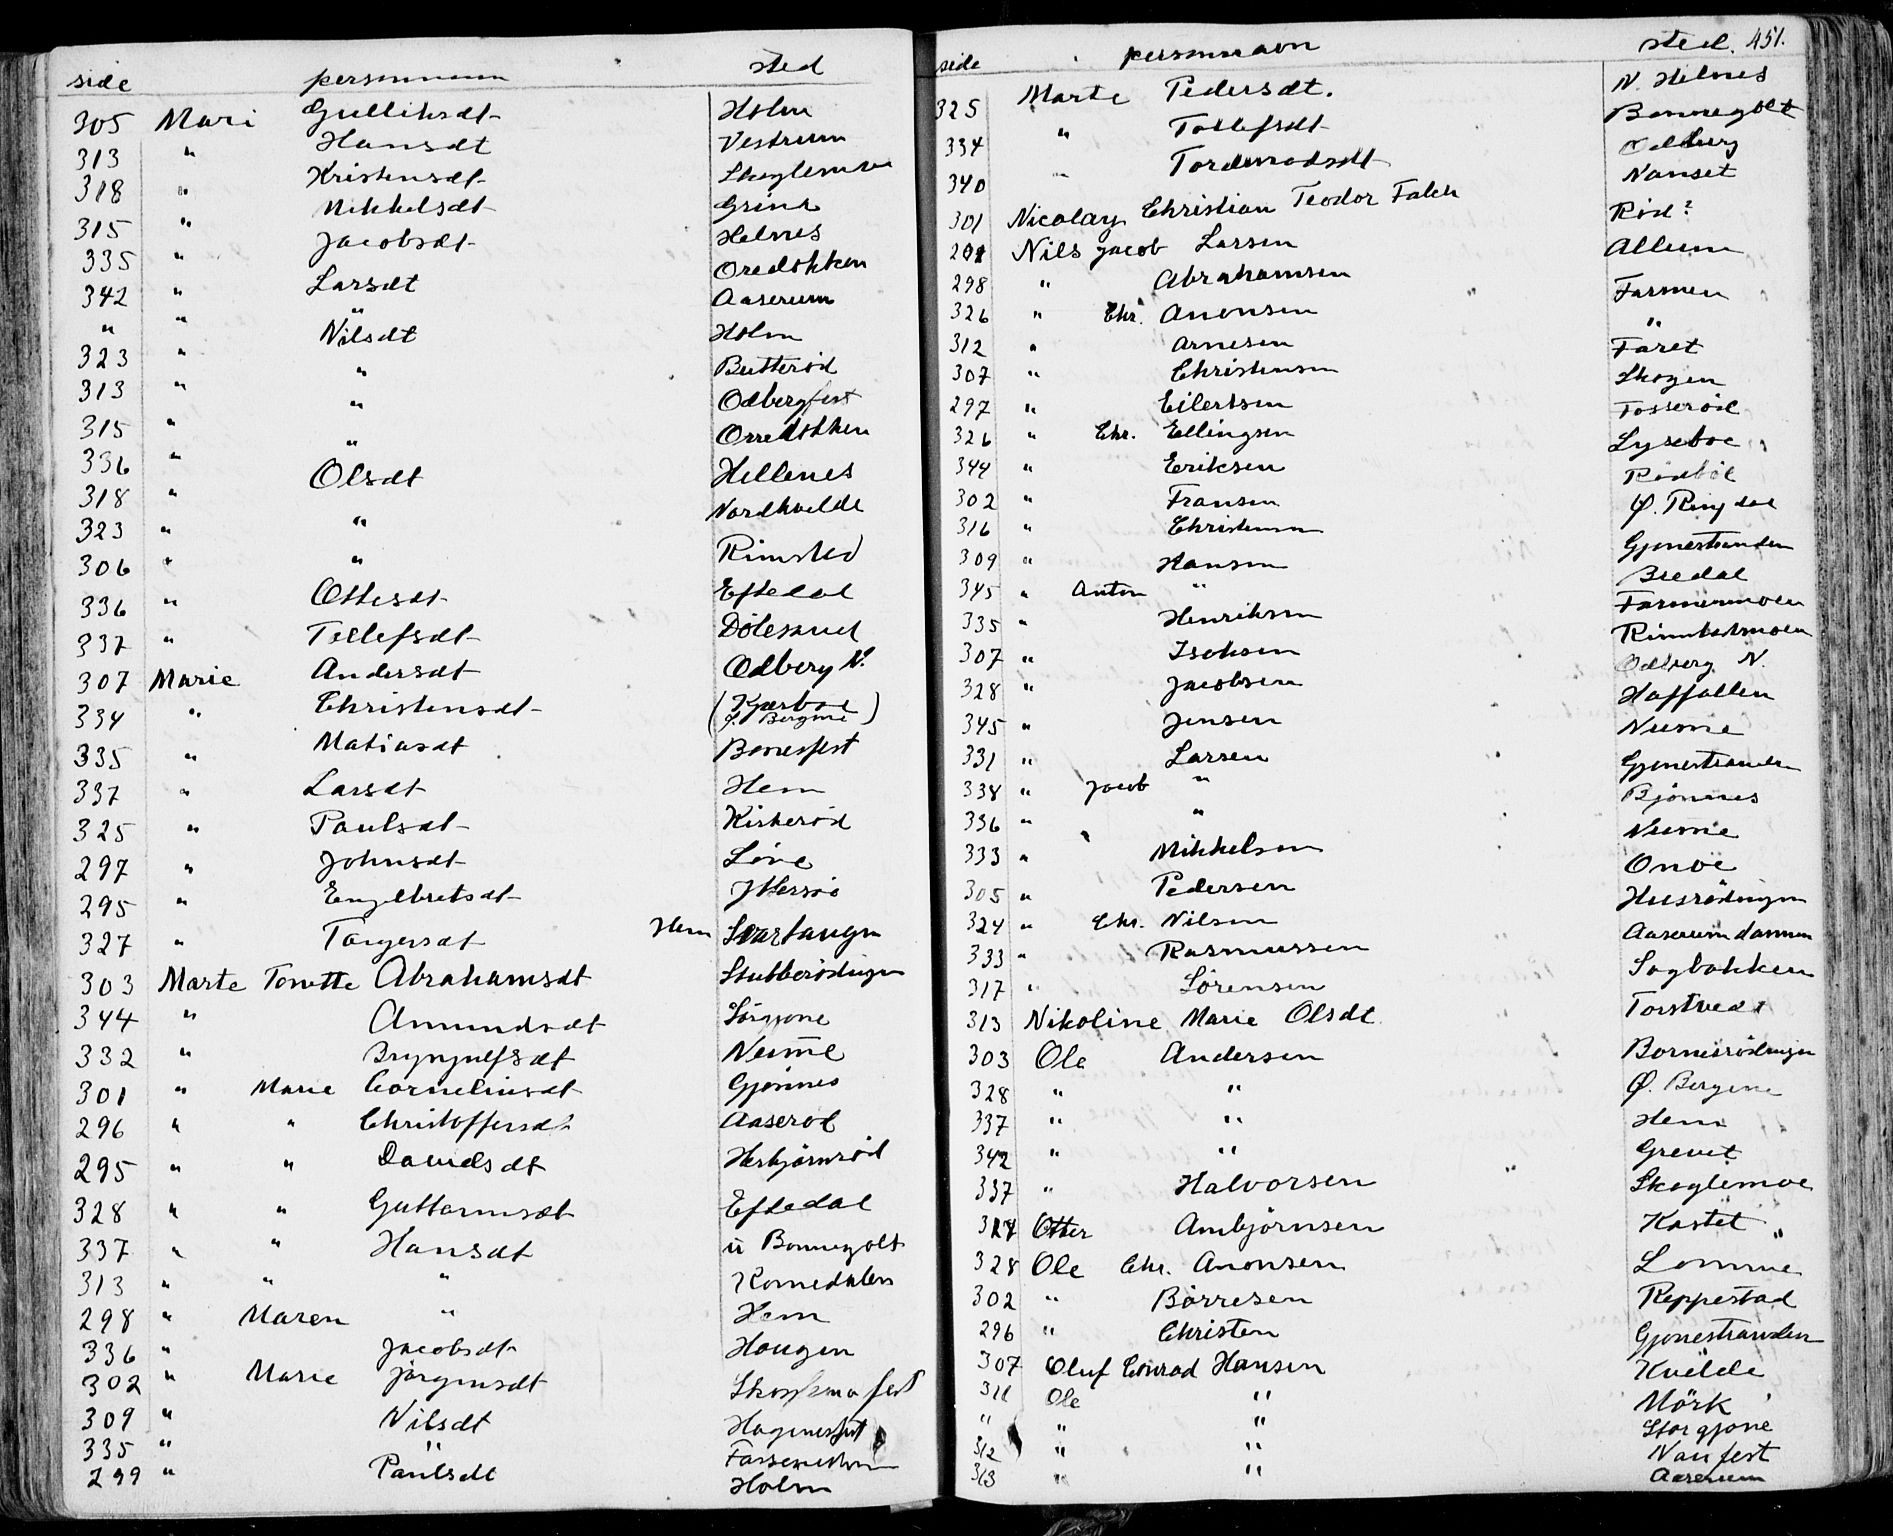 side personnavn sted
305 Mari Gulliksdt Holm
313 " Hansdt Vestrum
318 " Kristensdt Skoglemoe
315 " Mikkelsdt Grina
335 " Jacobsdt Helnes
342 " Larsdt Oredokken
" " " Aaserum
323 " Nilsdt Holm
313 " " Butterød
315 " " Odbergfest
336 " " Orredokken
318 " Olsdt Hellenes
323 " " Nordkvelde
306 " " Rimsted
336 " Ottesdt Eftedal
337 " Tellefsdt Dølesund
307 Marie Andersdt Odberg N.
334 " Christensdt (Kjærboe Ø. Bergene)
335 " Matiasdt Bonesfest
337 " Larsdt Hem
325 " Paulsdt Kirkerød
297 " Johnsdt Løve
295 " Engelbretsdt Yttersøe
327 " Torgersdt Hem Svartaugn
303 Marte Tonette Abrahamsdt Stubberødeigen
344 " Amundsdt Sørgjone
332 " Brynjulfsdt Neume
301 " Marie Corneliusdt Gjønnes
296 " " Christoffersdt Aaserød
295 " " Davidsdt Herbjørnrød
328 " " Guttormsdt Eftedal
337 " " Hansdt ü Bonnegolt
313 " " " Komedalen
298 " Maren " Hem
336 " Jacobsdt Haugen
302 " Marie Jörgensdt fest
309 " Nilsdt Hagenesfest
335 " "
299 " Paulsdt Holm
side personnavn sted. 451.
325 Marte Pedersdt. N. Helnes
334 " Tollefsdt Bonnegolt
340 " Tordensdt Odberg
301 Nicolay Christian Teodor Falch Nanset
291 Nils Jacob Larsen Rød?
298 " Abrahamsen Allum
326 " Chr. Anonsen Farmen
312 " Arnesen "
307 " Christensen Faret
297 " Eilertsen Skogen
326 " Chr. Ellingsen Tosserød
344 " Eriksen Lyseboe
302 " Fransen Rødbøl
316 " Christensen Ø. Ringdal
309 " Hansen Gjonestranden
345 " Anton " Bredal
335 " Henriksen Farmenmoen
307 " Isaksen Rimstadmoen
328 " Jacobsen Odberg N.
345 " Jensen Haffallen
331 " Larsen Neume
338 " Jacob " Gjonestranden
336 " " Bjönnes
333 " Mikkelsen Neume
305 " Pedersen Onoe
324 " Chr. Nilsen Husrødeigen
333 " Rasmussen Aaserumdammen
317 " Sörensen Sagbakken
313 Nikoline Marie Olsdt Torstvedt
303 Ole Andersen Bornesrødeigen
328 " " Ø. Bergene
337 " " Hem
342 " " Grevet
337 " Halvorsen Skoglemoe
327 Otter Ambjörnsen Kastet
328 Ole Chr. Anonsen Lomme
302 " Börresen Reppestad
296 " Christen Gjonestranden
307 Oluf Conrad Hansen Kvelde
311 Ole " Mörk
" " " Storgjone
312 " " Naufest
313 " " Aaserum